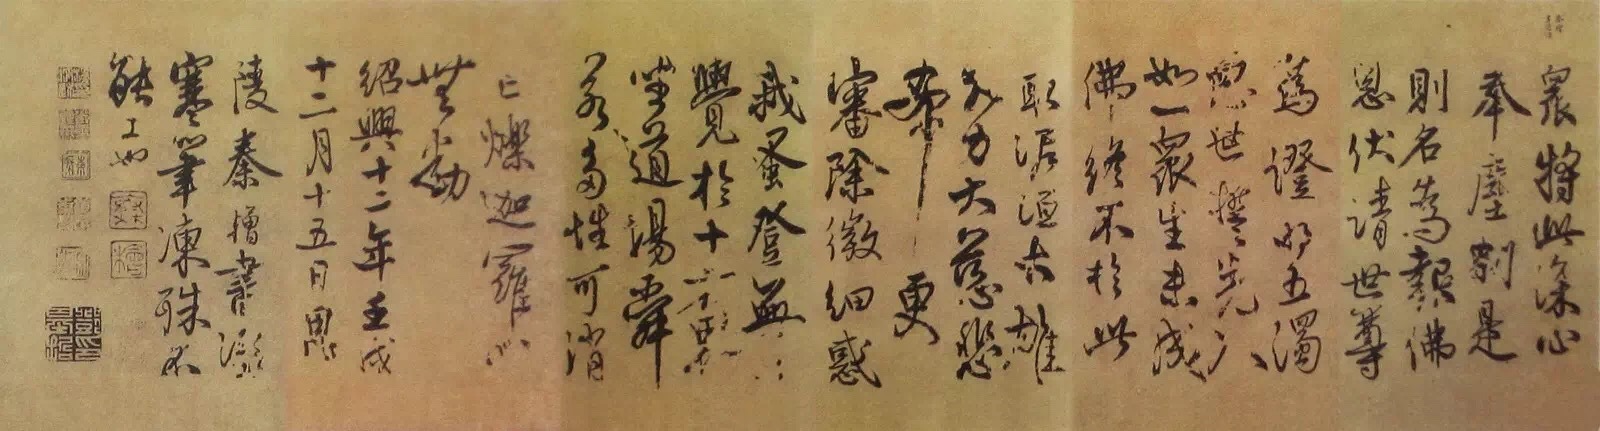 衆將此深心
奉塵剎是
則名為報佛
恩伏請世尊
為證明五濁
惡世誓先入
如一衆生未成
佛終不於此
取泥洹大雄
大力大慈悲
希更
審除微細惑
我蚤登無上
覺於十方界
坐道場舜
若多性可消
亡爍迦羅心
無動
紹興十二年壬戌
十二月十五日思
陵秦檜書灝
寒筆凍殊不
能工